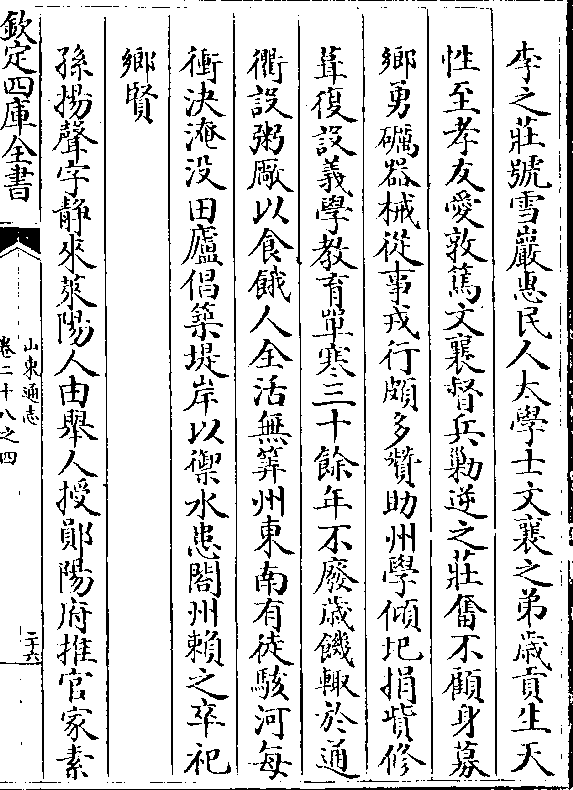 李之莊號雪巖惠民人大學士文襄之弟歲貢生天
性至孝友愛敦篤文襄督兵勦逆之莊奮不顧身募
鄉勇礪器械從事戎行頗多贊助州學傾圯捐貲修
葺復設義學教育單寒三十餘年不廢歲饑輙於通
衢設粥厰以食餓人全活無筭州東南有徒駭河每
衝決淹没田廬倡築堤岸以禦水患闔州賴之卒祀
鄉賢
孫揚聲字静來萊陽人由舉人授鄖陽府推官家素
欽定四庫全書
山東通志
卷二十八之四
二十六